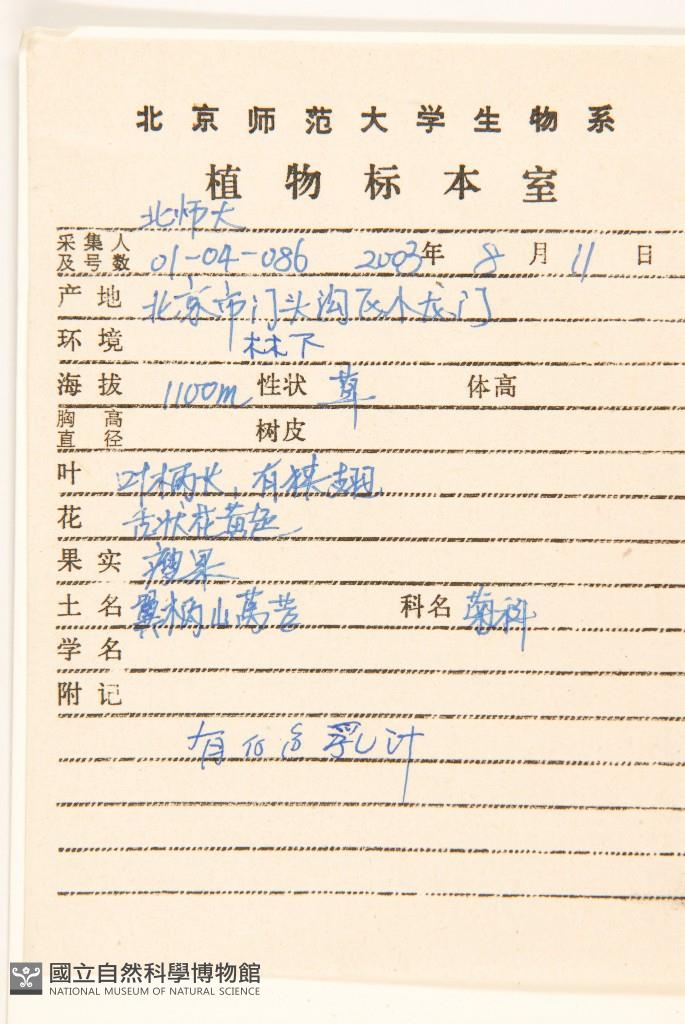 北京师范大学生物系
植物标本室
北师大
采集人及号数 01-04-086 2003年 8月 11日
产地 北京市门头沟区小龙门
环境 林下
海拔 1100m 性状 草 体高
胸高直径 树皮
叶 叶柄长,有狭翅
花 舌状花黄色
果实 瘦果
土名 翼柄山莴苣 科名 菊科
学名
附记
有白色乳汁
國立自然科學博物館
NATIONAL MUSEUM OF NATURAL SCIENCE